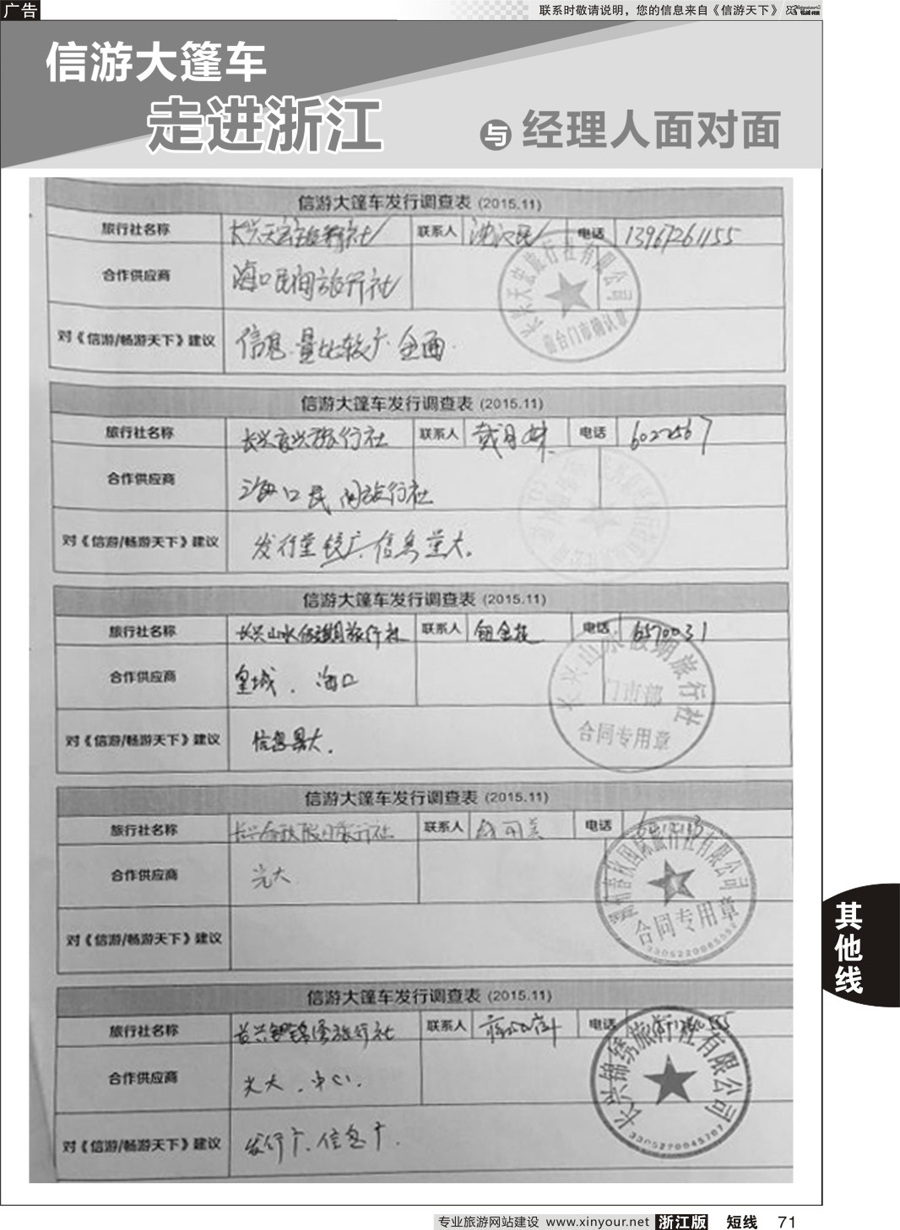 广告
联系时敬请说明，您的信息来自《信游天下》
信游大篷车
走进浙江
与 经理人面对面
信游大篷车发行调查表 (2015.11)
旅行社名称 长兴天宏旅行社 联系人 电话 13967261155
合作供应商 海口民间旅行社
长兴天宏旅行社有限公司
对《信游/畅游天下》建议 信息量比较广 全面.
信游大篷车发行调查表 (2015.11)
旅行社名称 旅行社 联系人 电话 6022567
合作供应商 海口民间旅行社
对《信游/畅游天下》建议 发行量较广，信息量大。
信游大篷车发行调查表 (2015.11)
旅行社名称 长兴山水假期旅行社 联系人 电话 6570031
合作供应商 皇城、海口
长兴山水假期旅行社
门市部
合同专用章
对《信游/畅游天下》建议 信息量大.
信游大篷车发行调查表 (2015.11)
旅行社名称 联系人 电话
合作供应商 光大
春秋国际旅行社有限公司
合同专用章
对《信游/畅游天下》建议
信游大篷车发行调查表 (2015.11)
旅行社名称 长兴锦绣旅行社 联系人 电话
合作供应商 光大、中心.
长兴锦绣旅行社有限公司
对《信游/畅游天下》建议 发行广、信息广.
其他线
专业旅游网站建设 www.xinyour.net 浙江版 短线 71